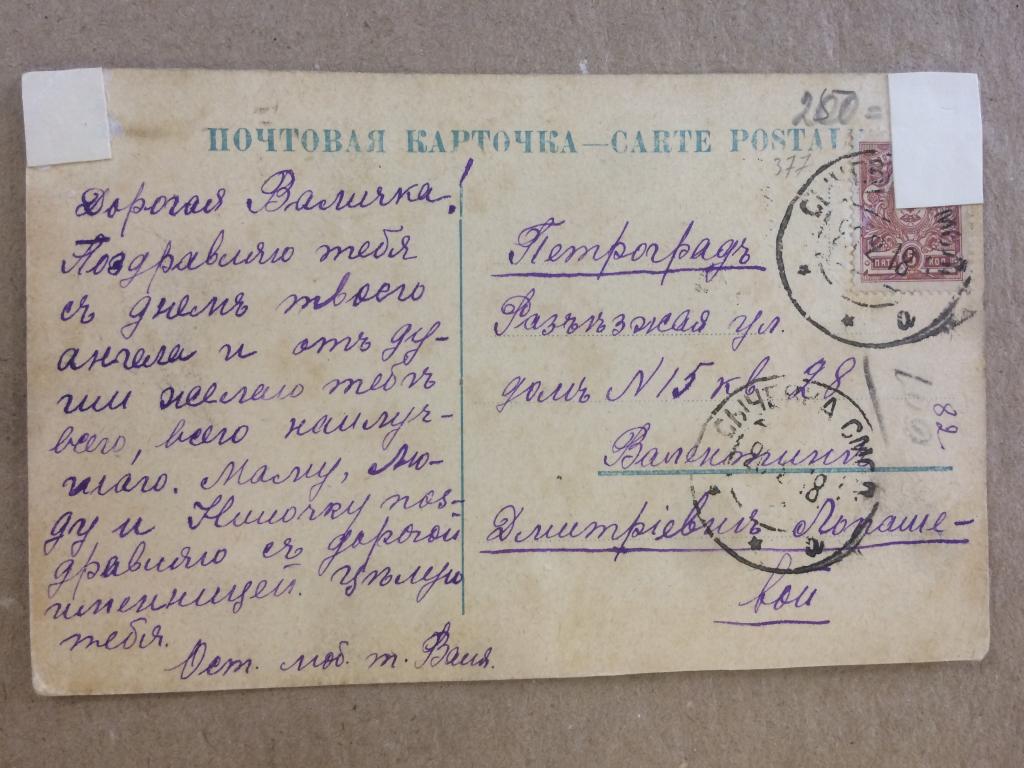 ПОЧТОВАЯ КАРТОЧКА—CARTE POSTAL
250=
377
Дорогая Валичка!
Поздравляю тебя
съ днемъ твоего
ангела и отъ ду-
ши желаю тебѣ
всего, всего наилуч-
шаго. Маму, Лю-
ду и Ниночку поз-
дравляю съ дорогой
именницей. Цѣлую
тебя.
Ост. люб. т. Валя.
Петроградъ
Разъѣзжая ул.
домъ N 15 кв. 28
Валентинѣ
Дмитріевнѣ Лупаше-
вой
82
ПЯТЬ КОП
СЫЧЕВКА СМОЛ
18
а
СЫЧ
18
а